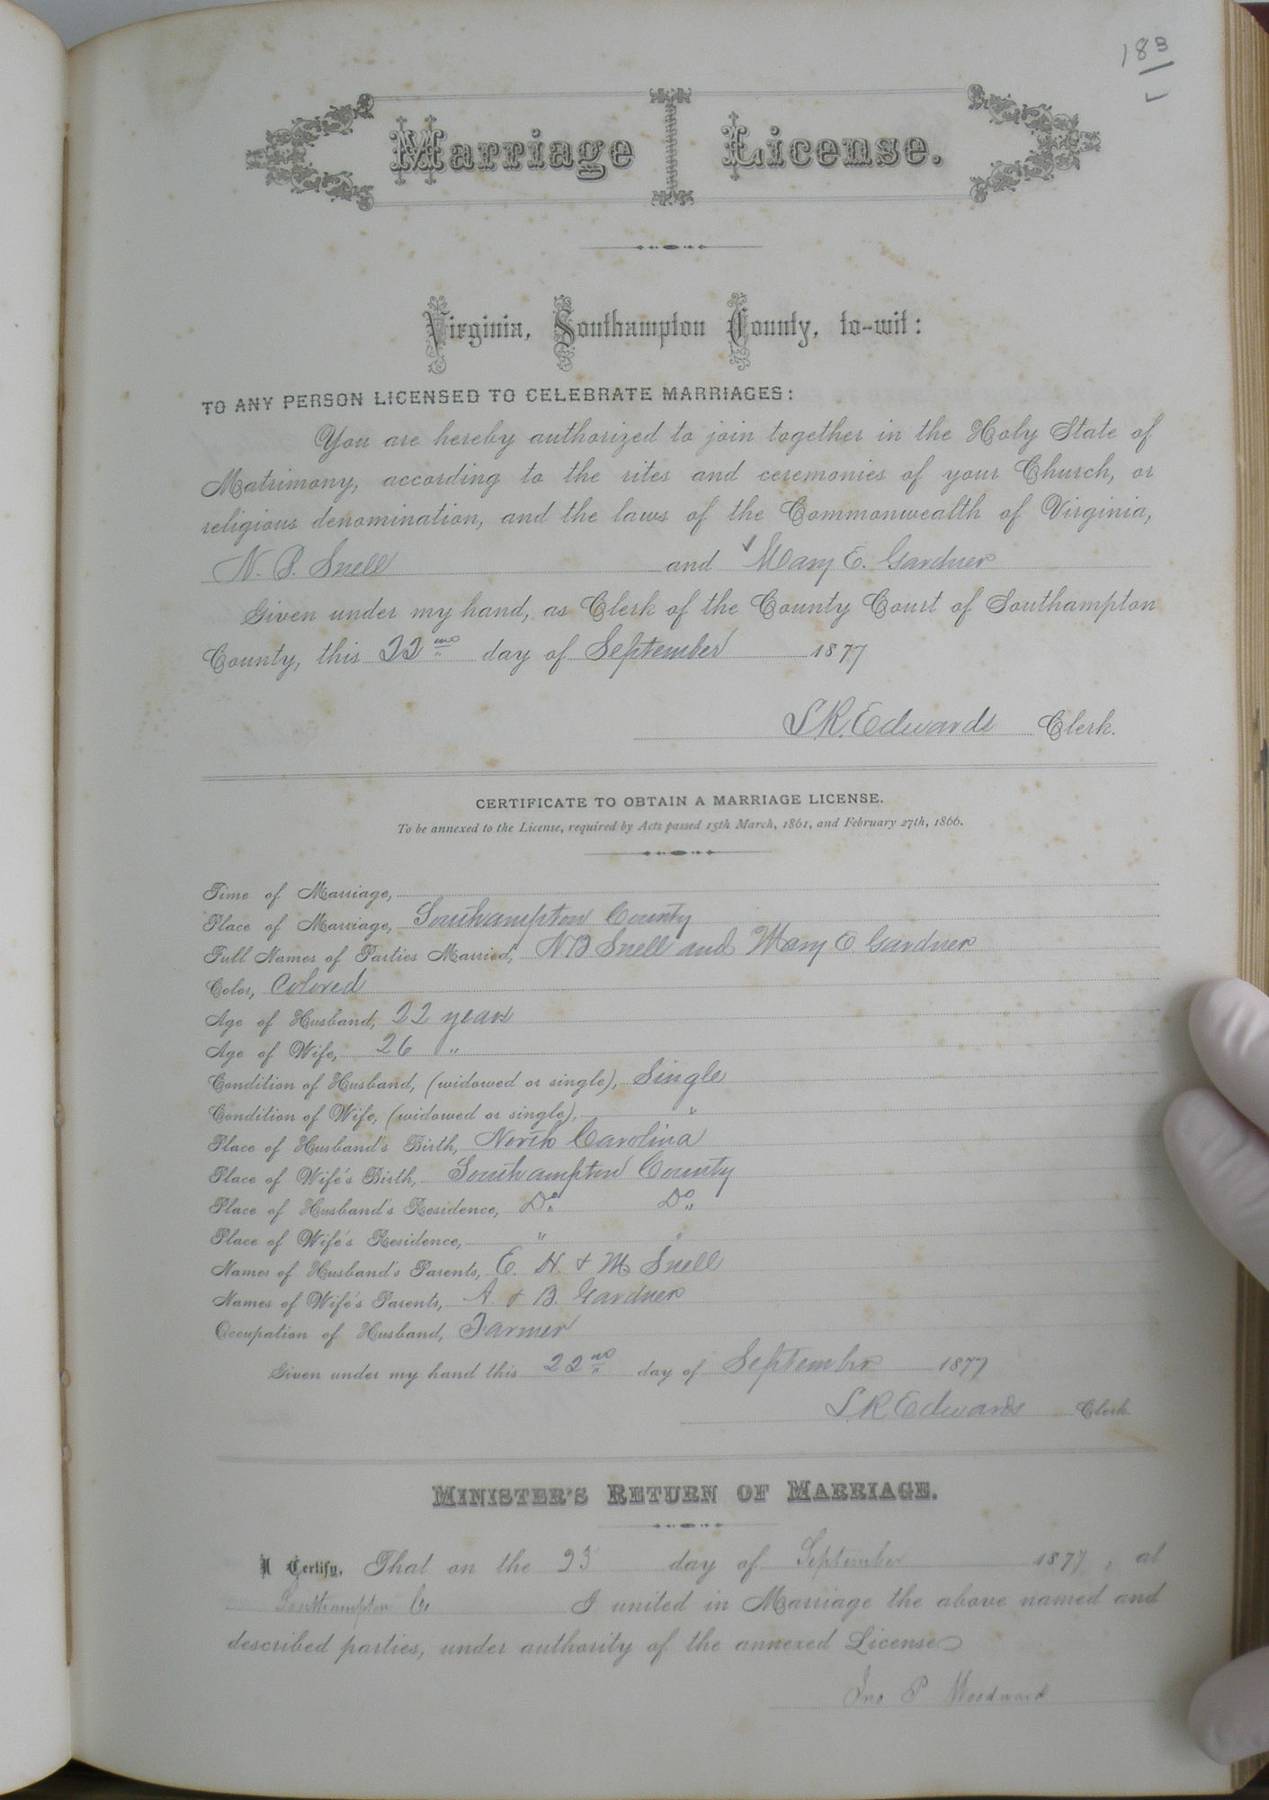 183
Marriage License.
Virginia, Southampton County, to-wit:
TO ANY PERSON LICENSED TO CELEBRATE MARRIAGES:
You are hereby authorized to join together in the Holy State of
Matrimony, according to the rites and ceremonies of your Church, or
religious denomination, and the laws of the Commonwealth of Virginia,
N. B. Snell and Mary E. Gardner
Given under my hand, as Clerk of the County Court of Southampton
County, this 22nd day of September 1877
L R. Edwards Clerk.
CERTIFICATE TO OBTAIN A MARRIAGE LICENSE.
To be annexed to the License, required by Acts passed 15th March, 1861, and February 27th, 1866.
Time of Marriage,
Place of Marriage, Southampton County
Full Names of Parties Married, N B Snell and Mary E. Gardner
Color, Colored
Age of Husband, 22 years
Age of Wife, 26 "
Condition of Husband, (widowed or single), Single
Condition of Wife, (widowed or single), "
Place of Husband's Birth, North Carolina
Place of Wife's Birth, Southampton County
Place of Husband's Residence, Do Do
Place of Wife's Residence, " "
Names of Husband's Parents, E. H. & M Snell
Names of Wife's Parents, A. & B. Gardner
Occupation of Husband, Farmer
Given under my hand this 22nd day of September 1877
L R Edwards Clerk
MINISTER'S RETURN OF MARRIAGE.
I Certify, That on the 23 day of September 1877, at
Southampton Co I united in Marriage the above named and
described parties, under authority of the annexed License
Jno P Woodward